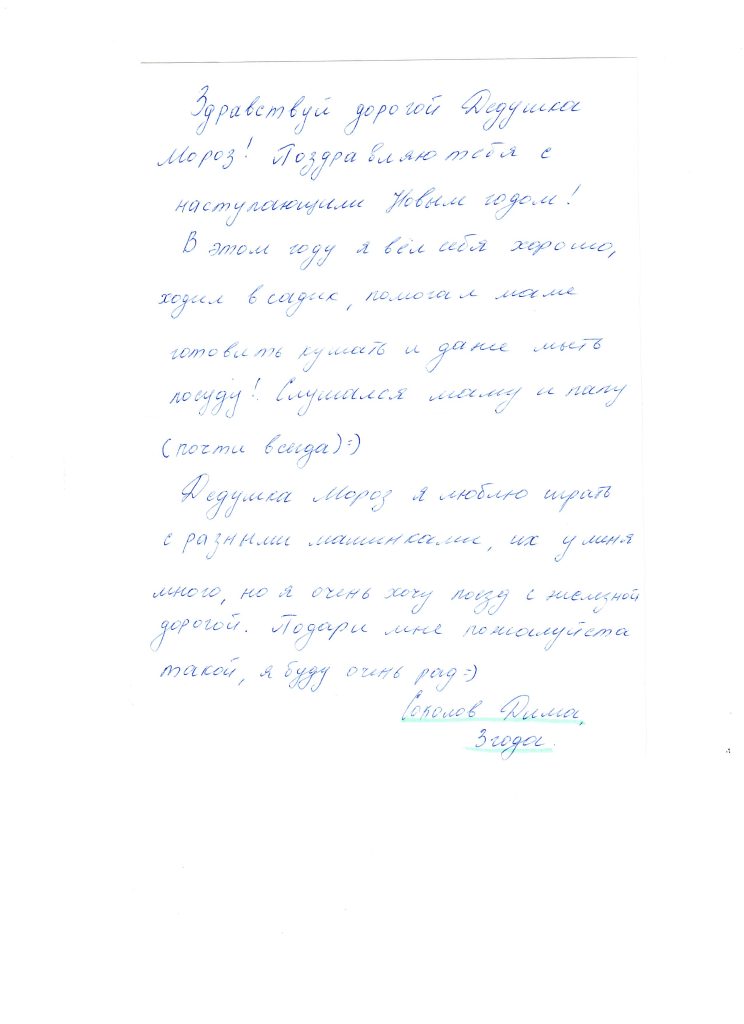 Здравствуй дорогой Дедушка
Мороз! Поздравляю тебя с
наступающим Новым годом!
В этом году я вёл себя хорошо,
ходил в садик, помогал маме
готовить кушать и даже мыть
посуду! Слушался маму и папу
(почти всегда)=)
Дедушка Мороз я люблю играть
с разными машинками, их у меня
много, но я очень хочу поезд с железной
дорогой. Подари мне пожалуйста
такой, я буду очень рад=)
Соколов Дима,
3 года.